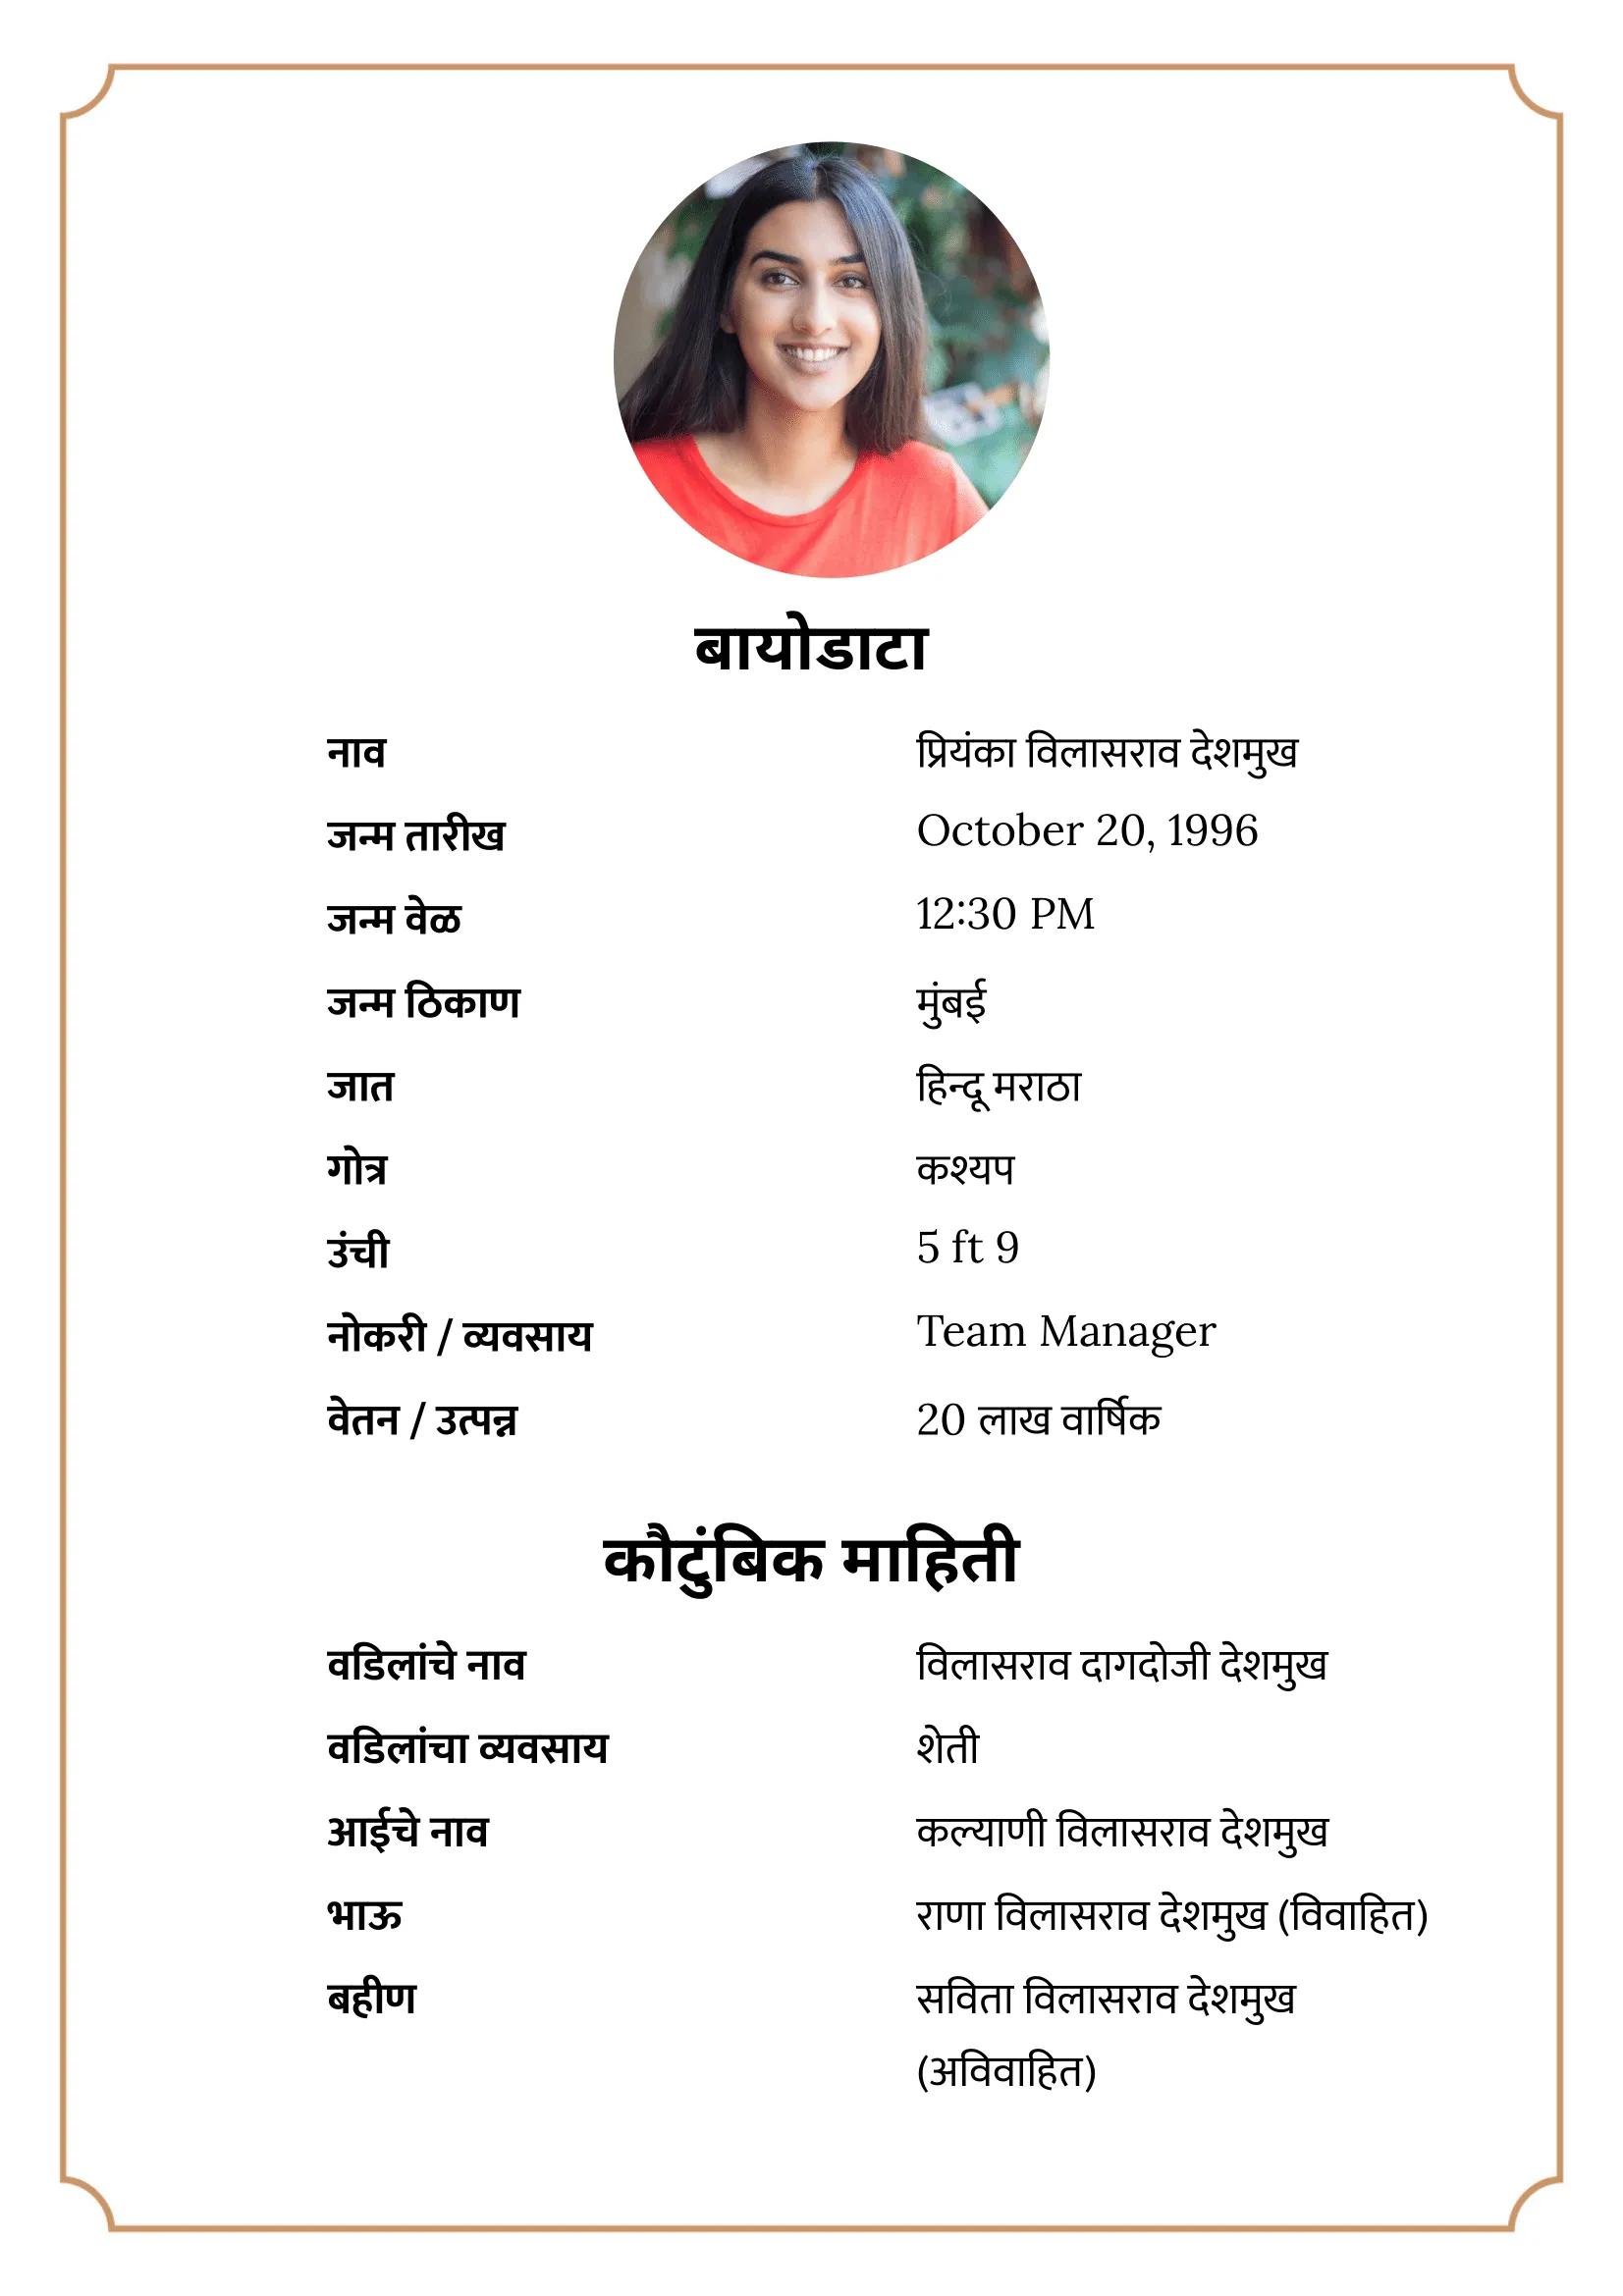 बायोडाटा
नाव प्रियंका विलासराव देशमुख
जन्म तारीख October 20, 1996
जन्म वेळ 12:30 PM
जन्म ठिकाण मुंबई
जात हिन्दू मराठा
गोत्र कश्यप
उंची 5 ft 9
नोकरी / व्यवसाय Team Manager
वेतन / उत्पन्न 20 लाख वार्षिक
कौटुंबिक माहिती
वडिलांचे नाव विलासराव दागदोजी देशमुख
वडिलांचा व्यवसाय शेती
आईचे नाव कल्याणी विलासराव देशमुख
भाऊ राणा विलासराव देशमुख (विवाहित)
बहीण सविता विलासराव देशमुख
(अविवाहित)